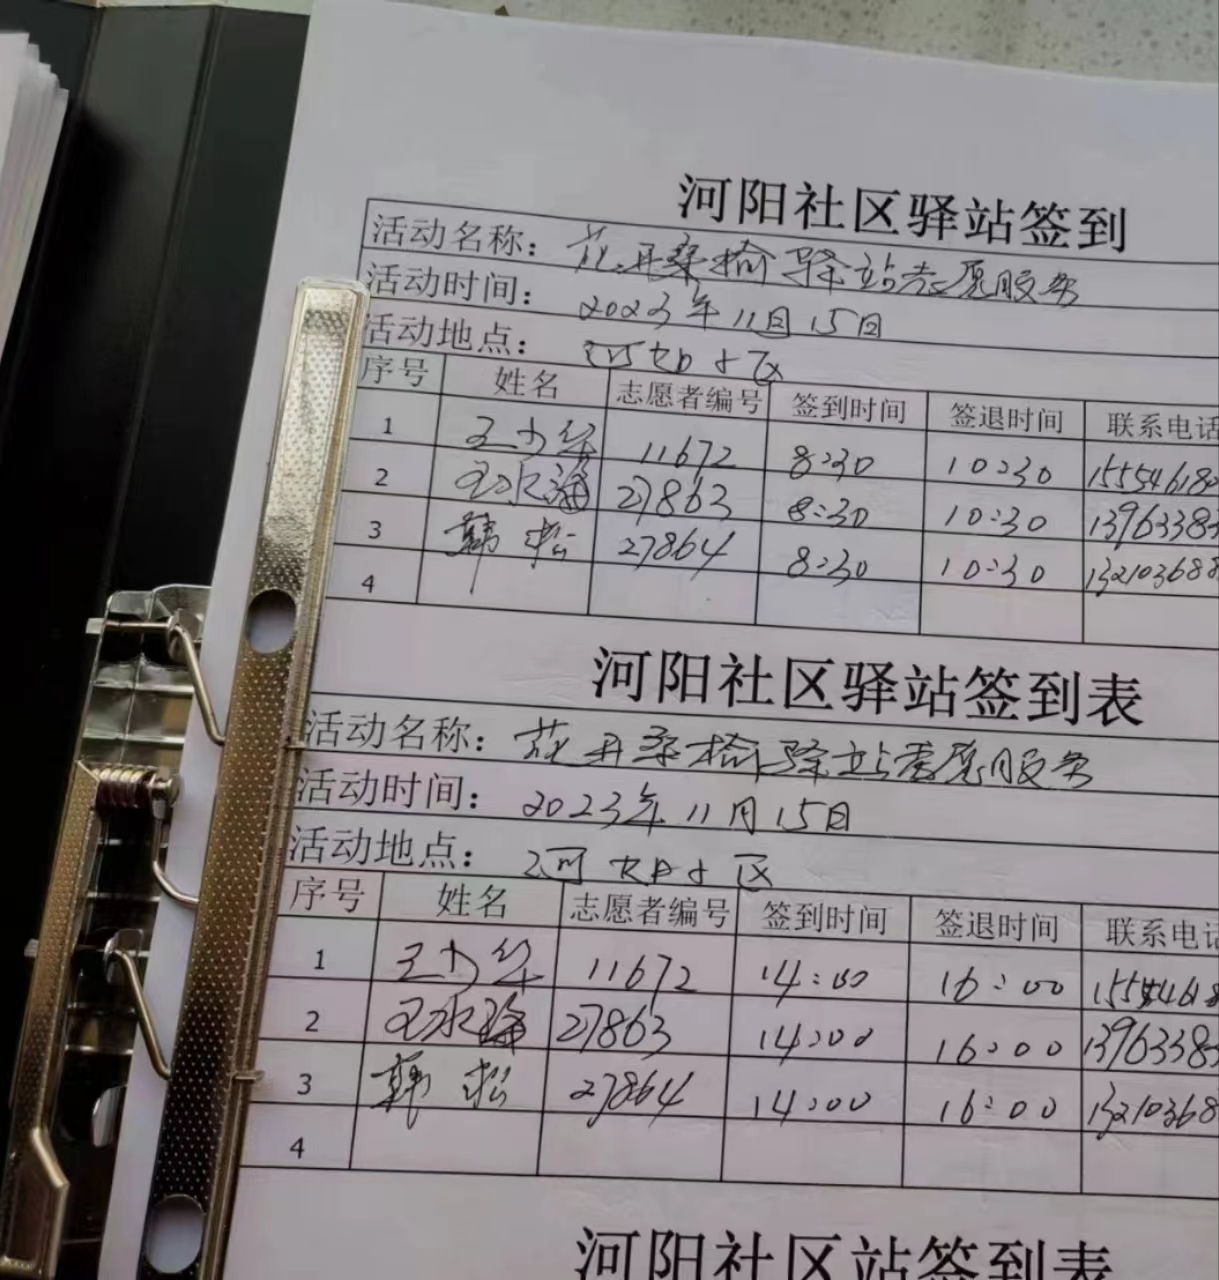 河阳社区驿站签到
活动名称: 花开桑榆驿站志愿服务
活动时间: 2023年11月15日
活动地点: 河阳小区
序号 姓名 志愿者编号 签到时间 签退时间 联系电话
1 王少华 11672 8:30 10:30 15554618
2 27863 8:30 10:30 1396338
3 韩松 27864 8:30 10:30 132103688
4
河阳社区驿站签到表
活动名称: 花开桑榆驿站志愿服务
活动时间: 2023年11月15日
活动地点: 河阳小区
序号 姓名 志愿者编号 签到时间 签退时间 联系电话
1 王少华 11672 14:00 16:00 15554618
2 27863 14:00 16:00 1396338
3 韩松 27864 14:00 16:00 13210368
4
河阳社区站签到表